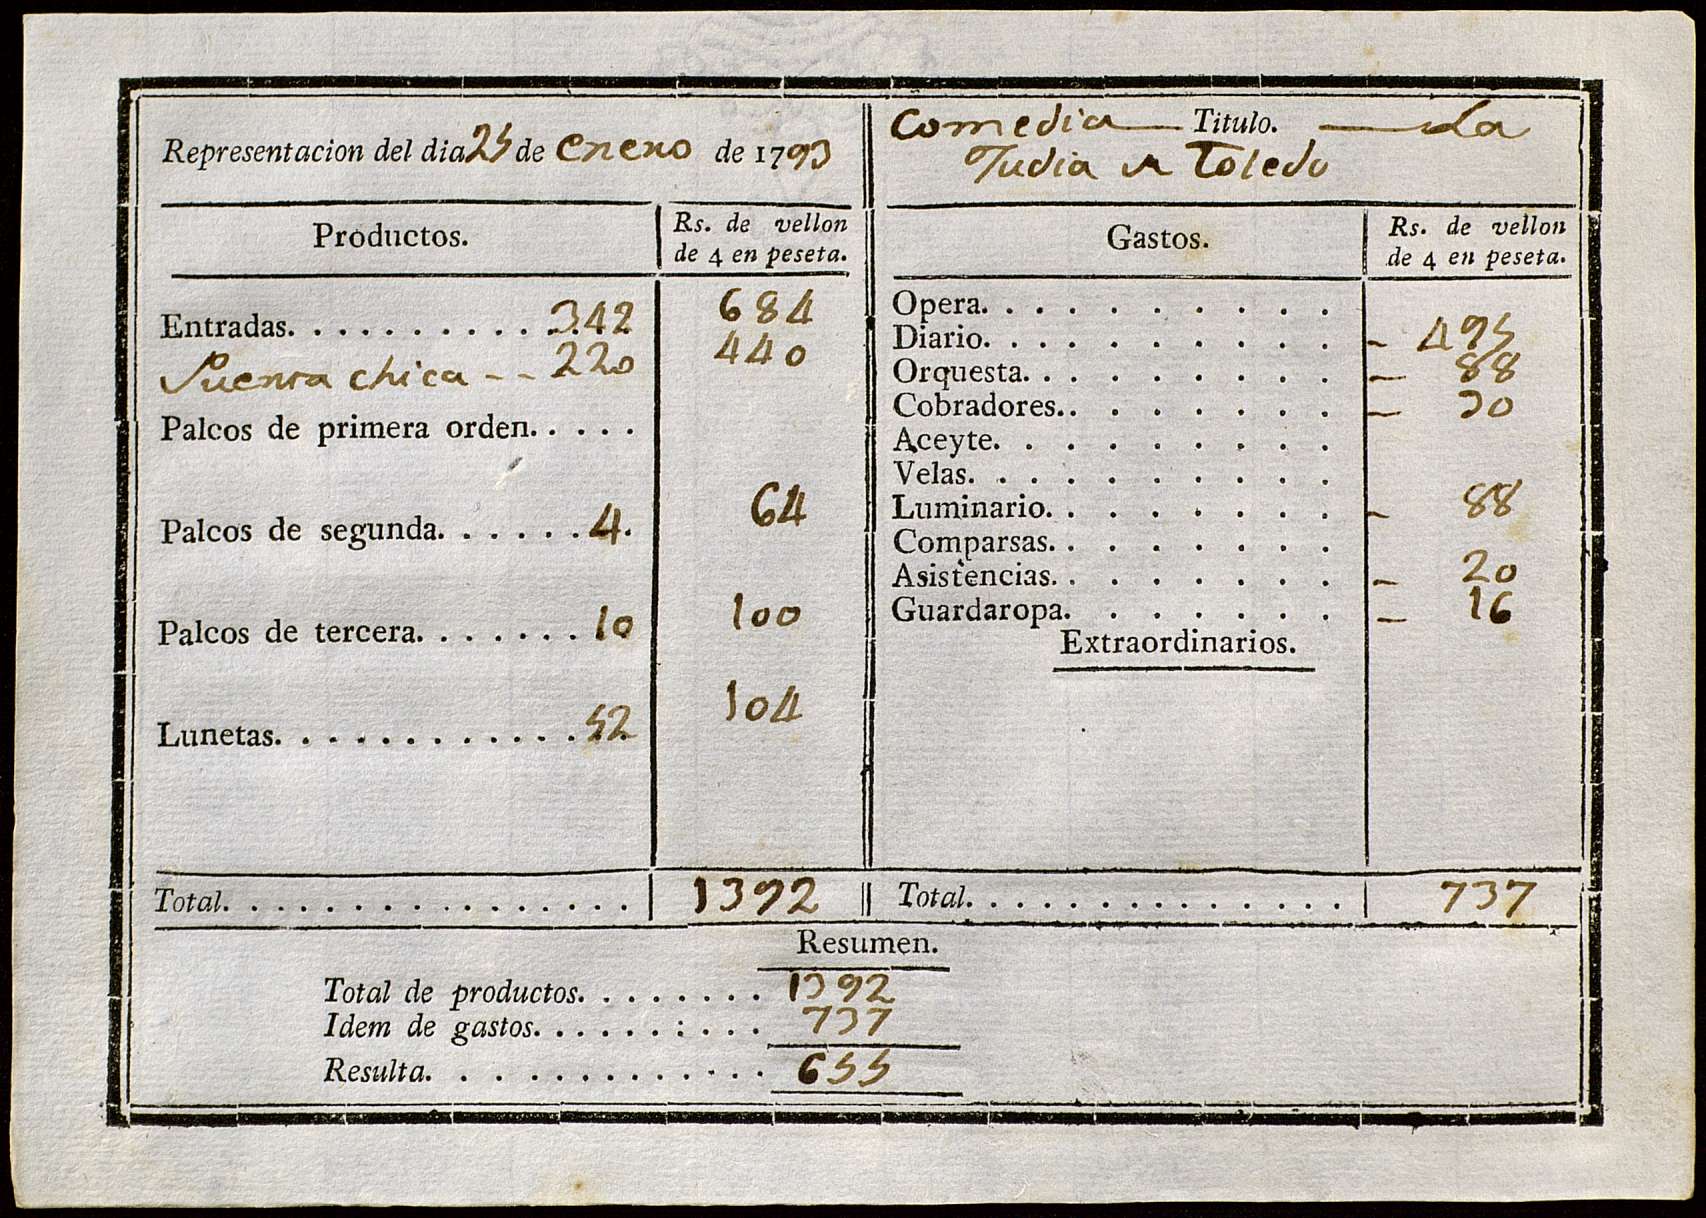 Representacion del dia 25 de enero de 1793
Productos.
Rs. de vellon
de 4 en peseta.
Entradas. . . . . . . . . . . 342 684
Puerta chica - - 220 440
Palcos de primera orden. . . . .
Palcos de segunda. . . . . . 4. 64
Palcos de tercera. . . . . . . 10 100
Lunetas. . . . . . . . . . . . . 52 104
Total. . . . . . . . . . . . . . . . . 1392
Comedia Titulo. La
Judia de Toledo
Gastos.
Rs. de vellon
de 4 en peseta.
Opera. . . . . . . . . . .
Diario. . . . . . . . . . . - 495
Orquesta. . . . . . . . . - 88
Cobradores. . . . . . . . - 30
Aceyte. . . . . . . . . .
Velas. . . . . . . . . . .
Luminario. . . . . . . . - 88
Comparsas. . . . . . . .
Asistencias. . . . . . . . - 20
Guardaropa. . . . . . . - 16
Extraordinarios.
Total. . . . . . . . . . . . . . . . 737
Resumen.
Total de productos. . . . . . . . 1392
Idem de gastos. . . . . . : . . . 737
Resulta. . . . . . . . . . . . . . 655